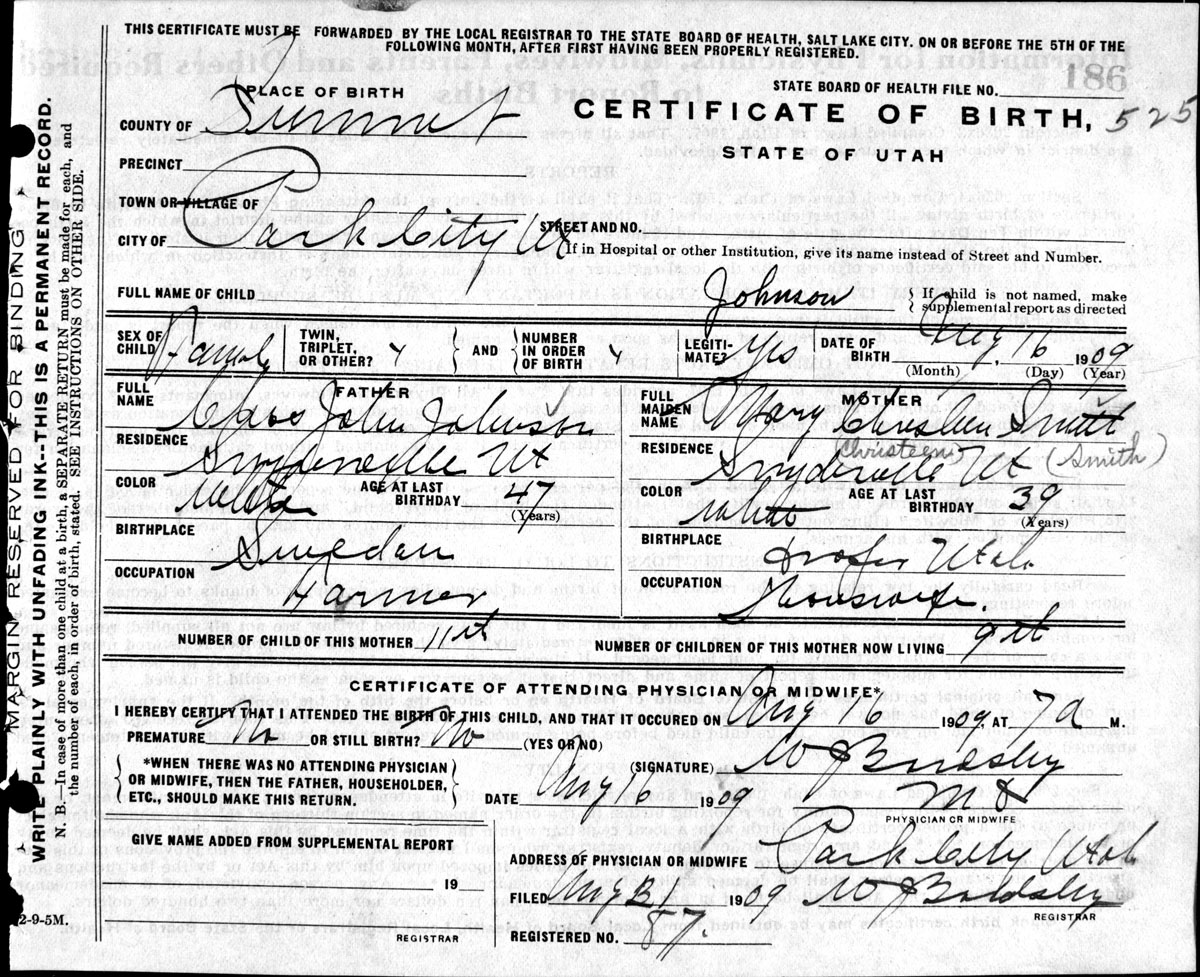 THIS CERTIFICATE MUST BE FORWARDED BY THE LOCAL REGISTRAR TO THE STATE BOARD OF HEALTH, SALT LAKE CITY. ON OR BEFORE THE 5TH OF THE
FOLLOWING MONTH, AFTER FIRST HAVING BEEN PROPERLY REGISTERED.
PLACE OF BIRTH
STATE BOARD OF HEALTH FILE NO. 186
COUNTY OF Summit
CERTIFICATE OF BIRTH, 525
STATE OF UTAH
PRECINCT
TOWN OR VILLAGE OF
CITY OF Park City Ut
STREET AND NO.
If in Hospital or other Institution, give its name instead of Street and Number.
FULL NAME OF CHILD Johnson
If child is not named, make supplemental report as directed
SEX OF CHILD
TWIN, TRIPLET, OR OTHER?
AND
NUMBER IN ORDER OF BIRTH
LEGITIMATE? Yes
DATE OF BIRTH Aug 16 1909
(Month) (Day) (Year)
FATHER
FULL NAME John Johnson
RESIDENCE Snyderville Ut
COLOR White
AGE AT LAST BIRTHDAY 47
(Years)
BIRTHPLACE Sweden
OCCUPATION Farmer
MOTHER
FULL MAIDEN NAME Mary
RESIDENCE Snyderville Ut
(Christeen) (Smith)
COLOR White
AGE AT LAST BIRTHDAY 39
(Years)
BIRTHPLACE Utah
OCCUPATION Housewife
NUMBER OF CHILD OF THIS MOTHER 11th
NUMBER OF CHILDREN OF THIS MOTHER NOW LIVING 9th
CERTIFICATE OF ATTENDING PHYSICIAN OR MIDWIFE*
I HEREBY CERTIFY THAT I ATTENDED THE BIRTH OF THIS CHILD, AND THAT IT OCCURED ON Aug 16 1909. AT 7 a M.
PREMATURE No OR STILL BIRTH? No (YES OR NO)
*WHEN THERE WAS NO ATTENDING PHYSICIAN
OR MIDWIFE, THEN THE FATHER, HOUSEHOLDER,
ETC., SHOULD MAKE THIS RETURN.
(SIGNATURE) W
DATE Aug 16 1909
PHYSICIAN OR MIDWIFE
GIVE NAME ADDED FROM SUPPLEMENTAL REPORT
19
REGISTRAR
ADDRESS OF PHYSICIAN OR MIDWIFE Park City Utah
FILED Aug 1909 W
REGISTRAR
REGISTERED NO. 87.
MARGIN RESERVED FOR BINDING
WRITE PLAINLY WITH UNFADING INK-THIS IS A PERMANENT RECORD.
N. B.—In case of more than one child at a birth, a SEPARATE RETURN must be made for each, and
the number of each, in order of birth, stated. SEE INSTRUCTIONS ON OTHER SIDE.
2-9-5M.